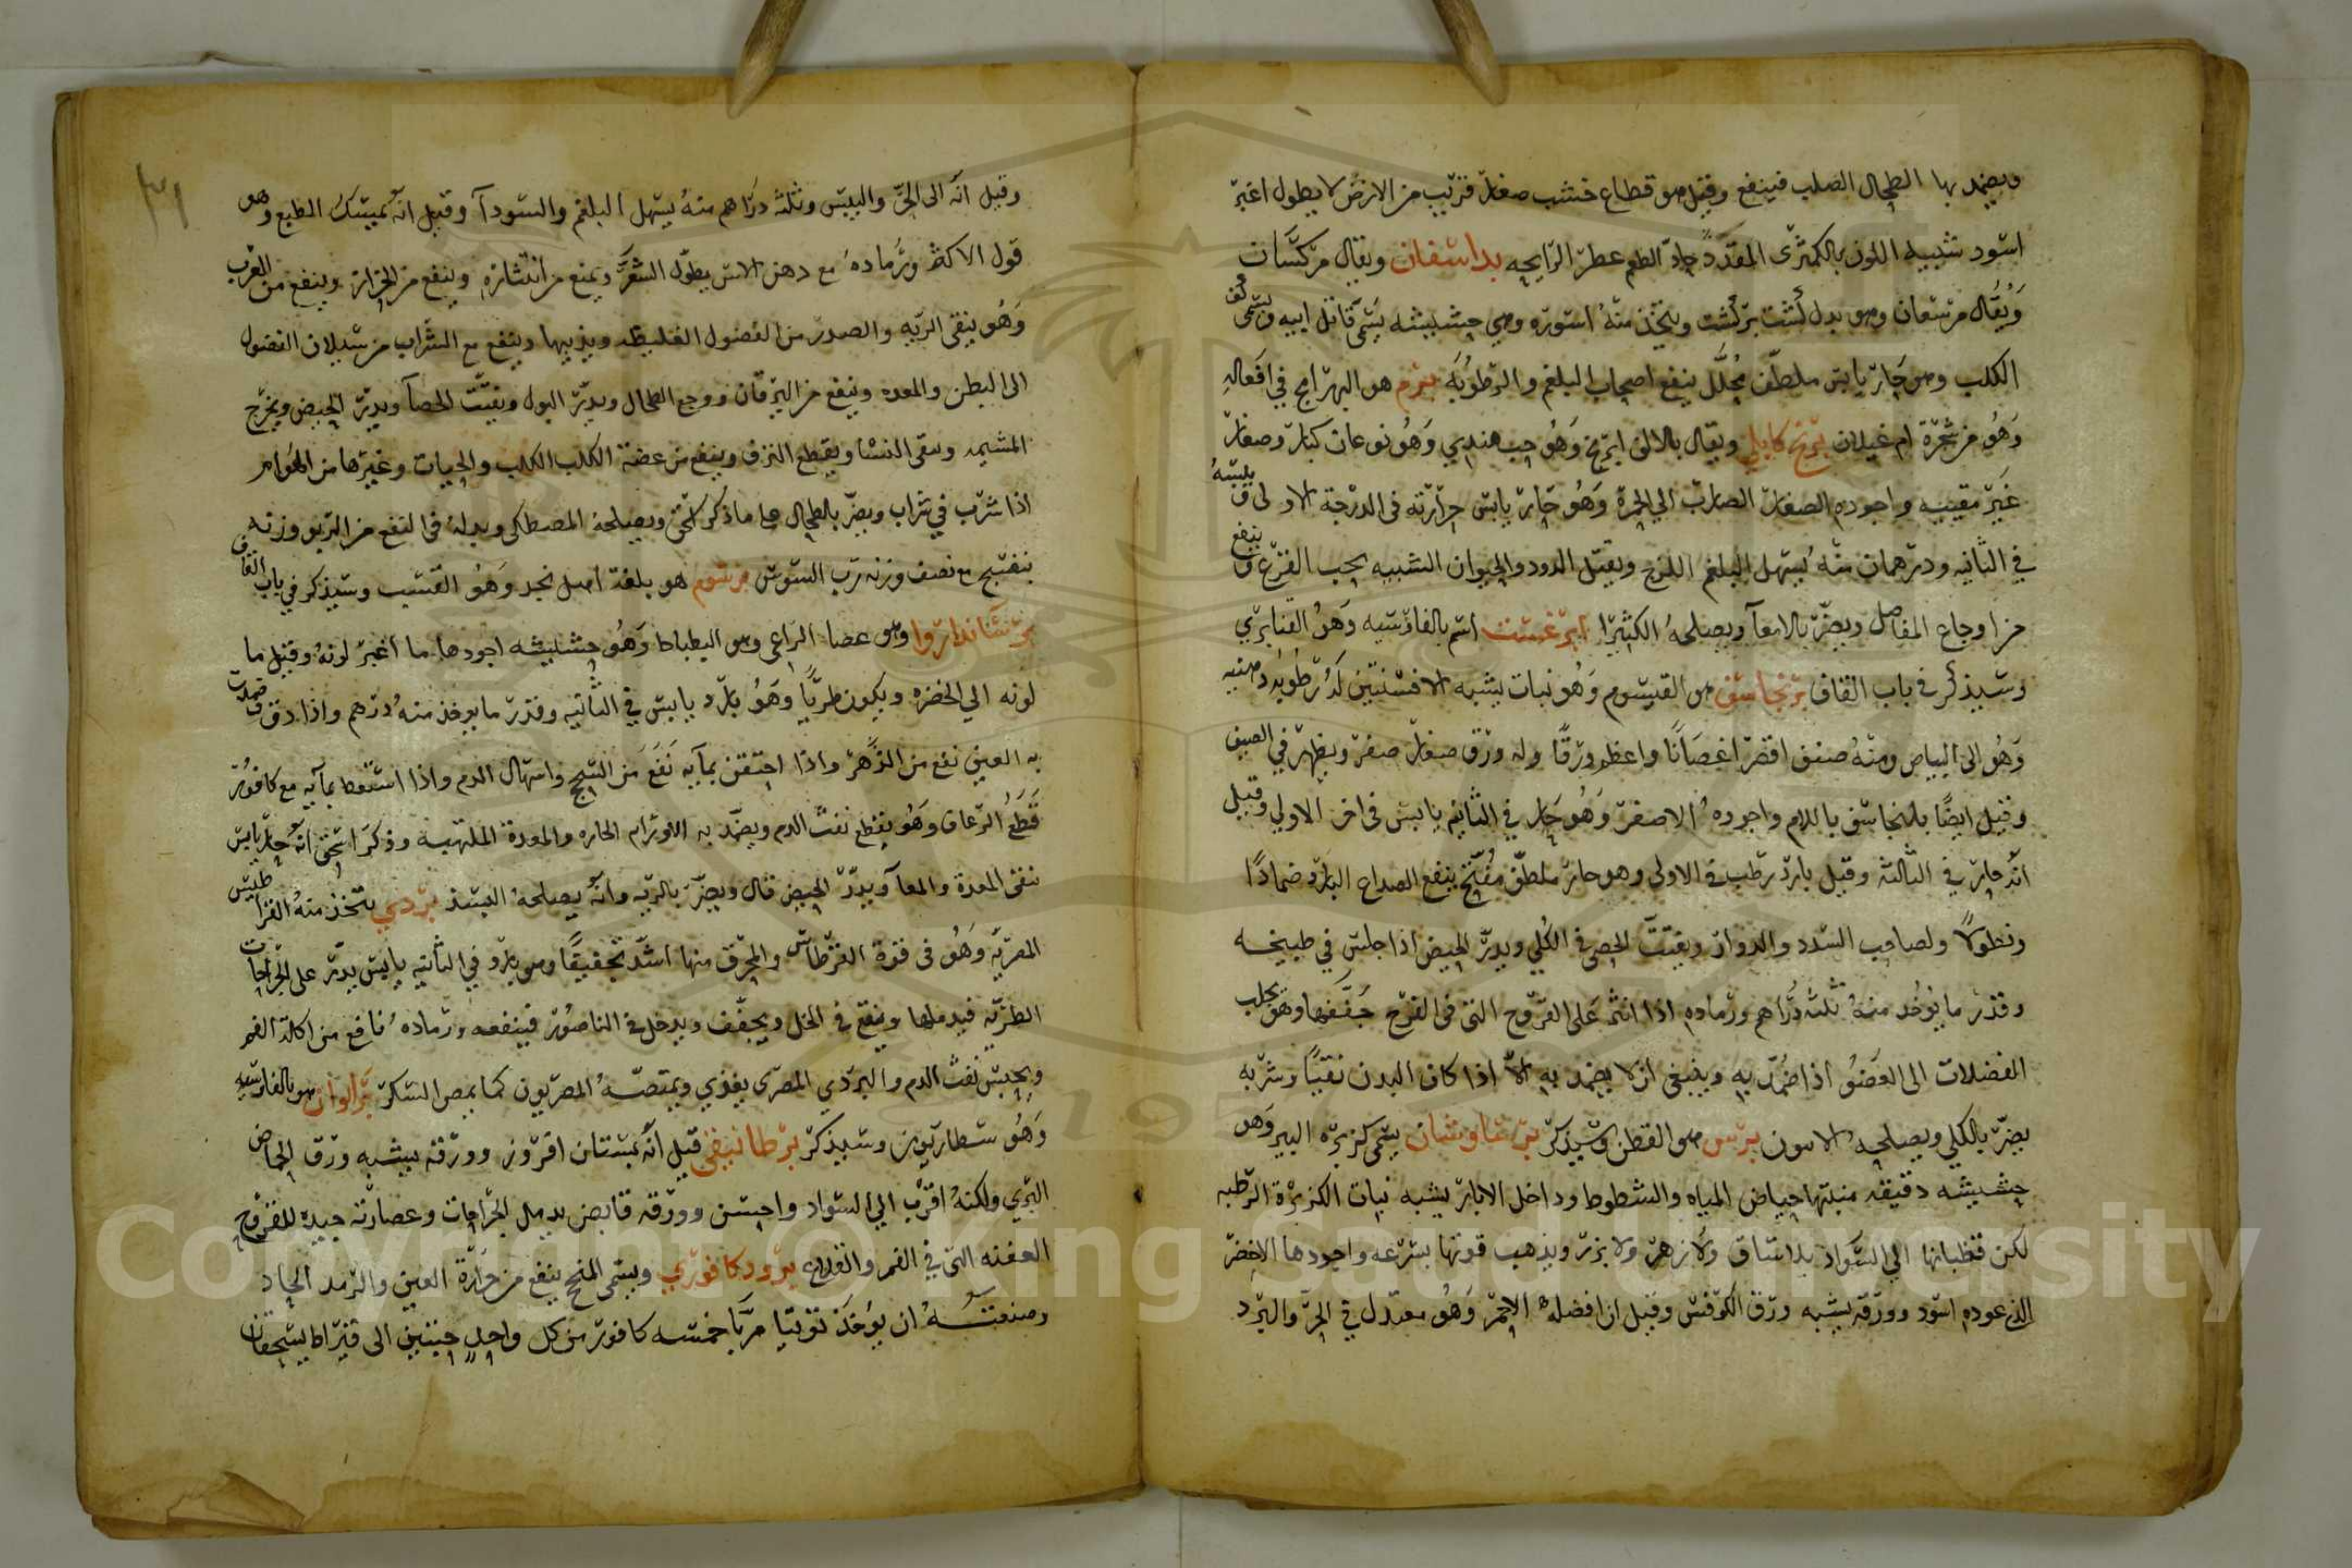 ويضمد بها الطحال الصلب فينفع وقيل هو قطاع خشب صغار قريب من الارض لا يطول اغبر
اسود شبيه اللون بالكمثرى المقدد حاد الطعم عطر الرايحه بداسفان ويقال مركسان
ويقال مرسعان وهو بدل كشت بركشت ويتخذ منه اسوره وهي حشيشه يسمى قاتل ابيه ويسمى كف
الكلب وهو حار يابس ملطف محلل ينفع اصحاب البلغم والرطوبه برم هو البهرامج في افعاله
وهو من شجرة ام غيلان برنج كابلي ويقال بالالف ابرنج وهو حب هندي وهو نوعان كبار وصغار
غير مقببه واجوده الصغار الضارب الي الحمرة وهو حار يابس حرارته في الدرجة الاولى ويبسه
في الثانيه ودرهمان منه يسهل البلغم اللزج ويقتل الدود والحيوان الشبيه بحب القرع وينفع
من اوجاع المفاصل ويضر بالامعآ ويصلحه الكثيرا ابرغست اسم بالفارسيه وهو القنابري
وسيذكر في باب القاف برنجاسف هو القيسوم وهو نبات يشبه الافسنتين له رطوبه دهنيه
وهو الى البياض ومنه صنف اقصر اغصانا واعظم ورقا وله ورق صغار صفر ويظهر في الصيف
وقيل ايضا بلنجاسف باللام واجوده الاصفر وهو حار في الثانيه يابس في اخر الاولي وقيل
انه حار في الثالثه وقيل بارد رطب في الاولى وهو حار ملطف مفتح ينفع الصداع البارد ضمادا
ونطولا ولصاحب السدد والدوار ويفتت الحصى في الكلي ويدر الحيض اذا جلس في طبيخه
وقدر ما يوخذ منه ثلثه دراهم ورماده اذا انثر على القروح التي في الفرج جففها وهو يجلب
الفضلات الى العضو اذا ضمد به وينبغي ان لا يضمد به الا اذا كان البدن نقيا وشربه
يضر بالكلي ويصلحه الانيسون برس هو القطن وسيذكر برشاوشان يسمى كزبره البير وهو
حشيشه دقيقه منبتها حياض المياه والشطوط وداخل الابار يشبه نبات الكزبرة الرطبه
لكن قضبانها الي السواد بلا ساق ولا زهر ولا بزر ويذهب قوتها بسرعه واجودها الاخضر
الذي عوده اسود وورقه يشبه ورق الكرفس وقيل ان افضله الاحمر وهو معتدل في الحر والبرد
٣١
وقيل انه الى الحر واليبس وثلثه دراهم منه يسهل البلغم والسودآ وقيل انه يمسك الطبع وهو
قول الاكثر ورماده مع دهن الاس يطول الشعر ويمنع من انتشاره وينفع من الحزاز وينفع من الغرب
وهو ينقي الريه والصدر من الفضول الغليظه ويذيبها وينفع مع الشراب من سيلان الفضول
الى البطن والمعده وينفع من اليرقان ووجع الطحال ويدر البول ويفتت الحصآ ويدر الحيض ويخرج
المشيمه وينقي النفسا ويقطع النزف وينفع من عضة الكلب الكلب والحيات وغيرها من الهوام
اذا شرب في شراب ويضر بالطحال على ما ذكر اسحق ويصلحه المصطكى وبدله في النفع من الربو وزنه
بنفسج مع نصف وزنه رب السوس برشوم هو بلغة اهل نجد وهو القسب وسيذكر في باب القاف
برشناندارو وهو عصا الراعي وهو البطباط وهو حشيشه اجودها ما اغبر لونه وقيل ما
لونه الي الخضره ويكون طريا وهو بارد يابس في الثانيه وقدر ما يوخذ منه درهم واذا دق وضمدت
به العين نفع من الزهر واذا احتقن بمآيه نفع من السحج واسهال الدم واذا استعط بمآيه مع كافور
قطع الرعاف وهو يقطع نفث الدم ويضمد به الاورام الحاره والمعدة الملتهبه وذكر اسحق انه حار يابس
ينقي المعدة والمعآ ويدر الحيض قال ويضر بالريه وانه يصلحه البسد بردي يتخذ منه القراطيس
المصريه وهو في قوة القرطاس والمحرق منها اشد تجفيفا وهو بارد في الثانيه يابس يدر على الجراحات
الطريه فيدملها وينقع في الخل ويجفف ويدخل في الناصور فينفعه ورماده نافع من اكلة الفم
ويحبس نفث الدم والبردي المصري يغذي ويمتصه المصريون كما يمص السكر برالوان هو بالفارسيه
وهو سطاريون وسيذكر برطانيقي قيل انه بستان افروز وورقه يشبه ورق الحماض
البري ولكنه اقرب الي السواد واحسن وورقه قابض يدمل الجراحات وعصارته جيده للقروح
العفنه التي في الفم والقلاع برود كافوري ويسمى المنح ينفع من حرارة العين والرمد الحاد
وصنعته ان يوخذ توتيا مربا خمسه كافور من كل واحد حبتين الى قيراط يسحقان